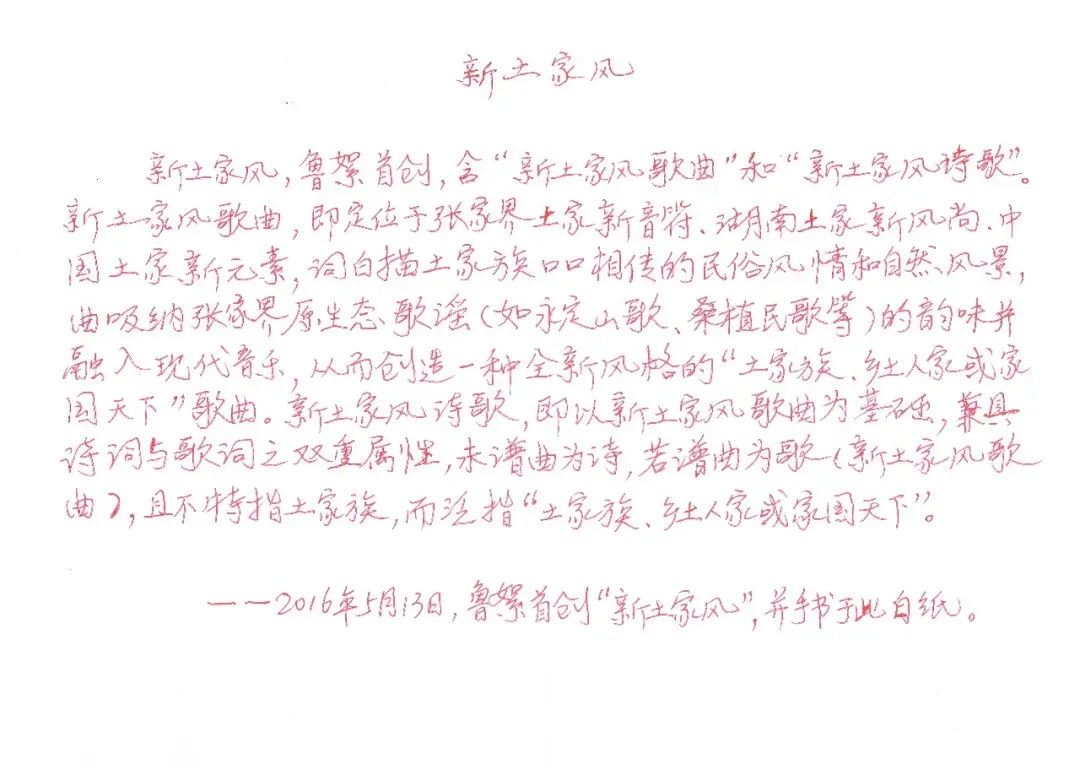 新土家风
新土家风，鲁絮首创，含“新土家风歌曲”和“新土家风诗歌”。
新土家风歌曲，即定位于张家界土家新音符、湖南土家新风尚、中
国土家新元素，词白描土家族口口相传的民俗风情和自然风景，
曲吸纳张家界原生态歌谣（如永定山歌、桑植民歌等）的韵味并
融入现代音乐，从而创造一种全新风格的“土家族、乡土人家或家
国天下”歌曲。新土家风诗歌，即以新土家风歌曲为基础，兼具
诗词与歌词之双重属性，未谱曲为诗，若谱曲为歌（新土家风歌
曲），且不特指土家族，而泛指“土家族、乡土人家或家国天下”。
——2016年5月13日，鲁絮首创“新土家风”，并手书于此白纸。